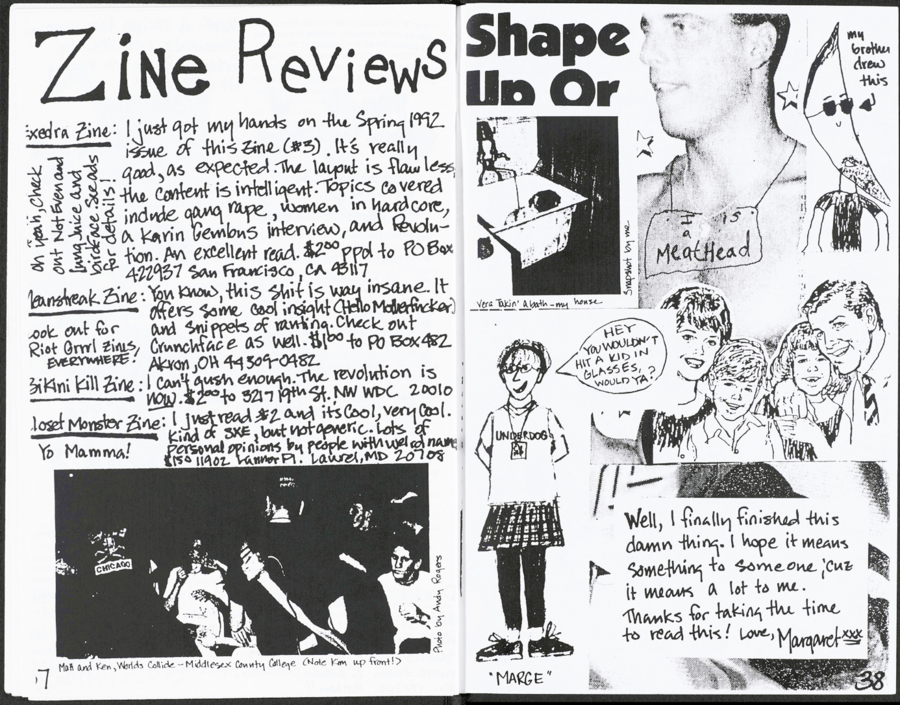 Zine Reviews
exedra Zine: I just got my hands on the Spring 1992
issue of this zine (#3). It's really
good, as expected. The layout is flawless,
the content is intelligent. Topics covered
include gang rape, women in hardcore,
a Karin Gembus interview, and Revolu-
tion. An excellent read. $2.00 ppd to PO Box
422937 San Francisco, CA 43117
oh yeah, check
out Not Even and
Lung Juice and
birdface Seeads
for details!
Meanstreak Zine: You know, this shit is way insane. It
offers some cool insight (Hello Motherfucker)
and snippets of ranting. Check out
Crunchface as well. $1.00 to PO Box 482
Akron, OH 44309-0482
ook out for
Riot Grrrl Zines,
EVERYWHERE!
Bikini Kill Zine: I can't gush enough. The revolution is
now. $2.00 to 3217 19th St. NW WDC 20010
loset Monster Zine: I just read #2 and its cool, very cool.
Kind of SKE, but not generic. Lots of
personal opinions by people with weird names
$1.50 11902 Tannor Pl. Laurel, MD 20708
Yo Mamma!
CHICAGO
Photo by Andy Rogers
Matt and Ken, Worlds Collide - Middlesex County College (Note Kim up front!)
7
Shape
Up Or
my
brother
drew
this
Hi
is
a
MeatHead
Snapshot by me
Vera Takin' a bath - my house
HEY
YOU WOULDN'T
HIT A KID IN
GLASSES,
WOULD YA?
UNDERDOG
"MARGE"
Well, I finally finished this
damn thing. I hope it means
something to someone, 'cuz
it means a lot to me.
Thanks for taking the time
to read this! Love, Margaret xxx
38